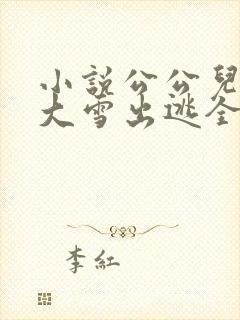 小說公公兒
大雪出逃全
李紅